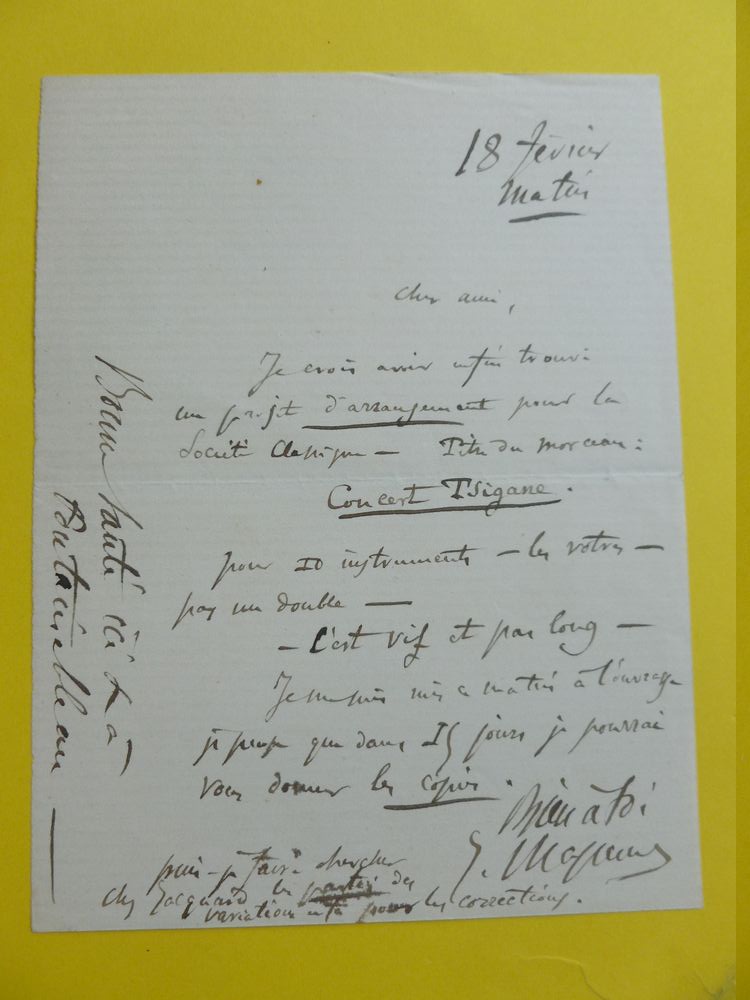 18 février
matin
cher ami,
Je crois avoir enfin trouvé
un projet d'arrangement pour la
Société Classique — Titre du morceau :
Concert Tsigane.
pour 10 instruments — les votres —
pas un double —
— C'est vif et pas long —
Je me suis mis ce matin à l'ouvrage
je pense que dans 15 jours je pourrai
vous donner les copies.
Bien à toi
puis-je faire chercher
chez Jacquard les parties des
variations pour les corrections.
Bonne santé ici & à
Fontainebleau —